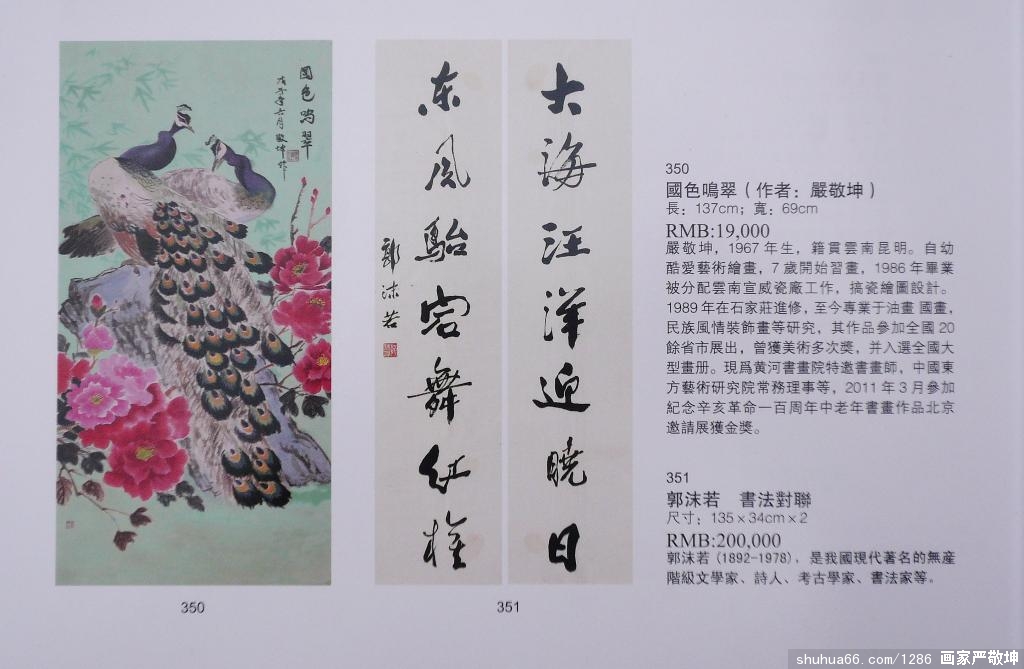 國色鳴翠
戊子年六月敬坤作
大海汪洋迎曉日
东風駘宕舞红旌
郭沫若
350
國色鳴翠（作者：嚴敬坤）
長：137cm；寬：69cm
RMB:19,000
嚴敬坤，1967年生，籍貫雲南昆明。自幼
酷愛藝術繪畫，7歲開始習畫，1986年畢業
被分配雲南宣威瓷廠工作，搞瓷繪圖設計。
1989年在石家莊進修，至今專業于油畫 國畫，
民族風情裝飾畫等研究，其作品參加全國20
餘省市展出，曾獲美術多次獎，并入選全國大
型畫册。現爲黄河書畫院特邀書畫師，中國東
方藝術研究院常務理事等，2011年3月參加
紀念辛亥革命一百周年中老年書畫作品北京
邀請展獲金獎。
351
郭沫若　書法對聯
尺寸：135×34cm×2
RMB:200,000
郭沫若(1892-1978)，是我國現代著名的無産
階級文學家、詩人、考古學家、書法家等。
350
351
shuhua66.com/1286 画家严敬坤